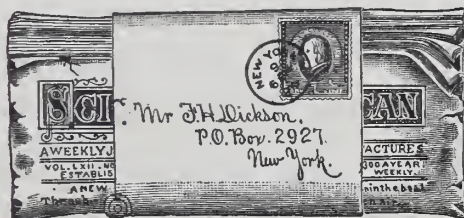 NEW YO
SCI
CAN
Mr F. H. Dickson,
P.O. Box. 2927.
New York.
A WEEKLY J
ACTURES
VOL. LXII. NO
ESTABLIS
$3.00 A YEAR
WEEKLY.
A NEW